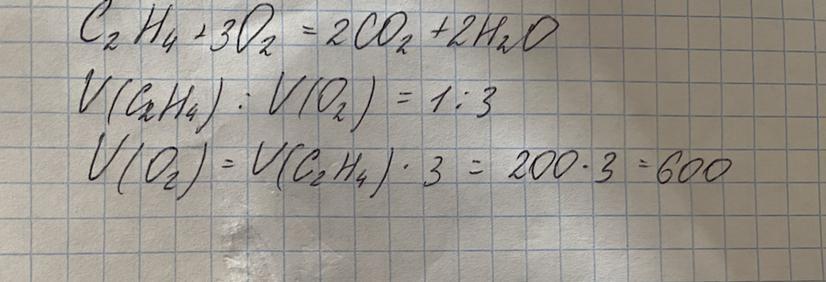 C₂H₄+3O₂=2CO₂+2H₂O
V(C₂H₄):V(O₂)=1:3
V(O₂)=V(C₂H₄)·3=200·3=600